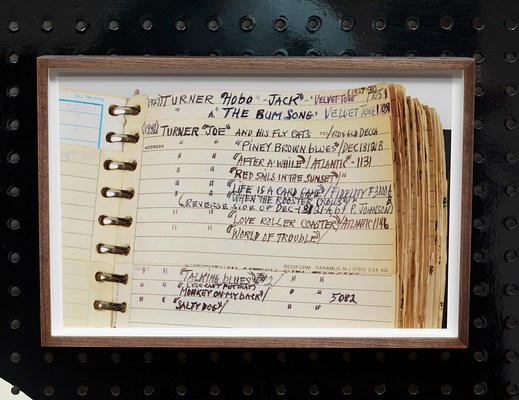 TURNER "HOBO" - JACK" - "VELVET TONE" 1705
" " THE BUM SONG" VELVET TONE
TURNER "JOE" AND HIS FLY CATS DECCA
ADDRESS " " "PINEY BROWN BLUES"/DEC 18121B
" " "AFTER A WHILE"/ATLANTIC - 1131
" " "RED SAILS IN THE SUNSET"
" " "LIFE IS A CARD GAME"/FIDELITY
"WHEN THE ROOSTER CROWS"
(REVERSE SIDE OF DEC-18121-A, P. JOHNSON)
" " "LOVE ROLLER COASTER"/ATLANTIC 1146
" " "WORLD OF TROUBLE"/
REDIFORM PARAMUS, N.J. 07652 U.S.A.
" " "TALKING BLUES" " "
"MONKEY ON MY BACK"/ " " 5082
" " "SALTY DOG"/ " "